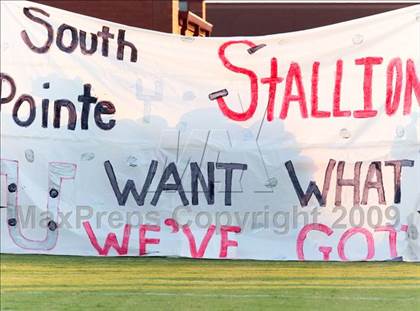 South
Point
Stallion
U WANT WHAT
WE'VE GOT
MaxPreps Copyright 2009